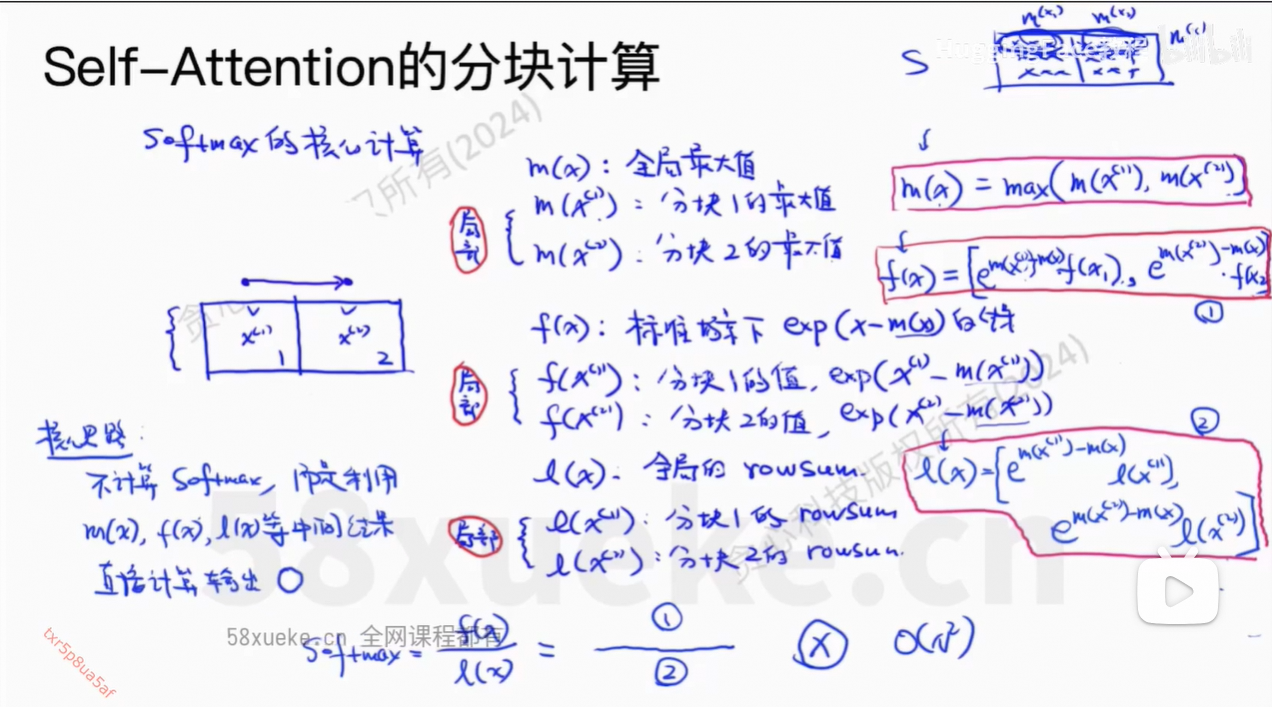 Self-Attention的分块计算
Softmax的核心计算
S
m(x₁) m(x₂)
m(x): 全局最大值
局部
m(x⁽¹⁾): 分块1的最大值
m(x⁽²⁾): 分块2的最大值
m(x) = max(m(x⁽¹⁾), m(x⁽²⁾))
f(x) = [e^{m(x⁽¹⁾)-m(x)} f(x₁), e^{m(x⁽²⁾)-m(x)} · f(x₂
①
x⁽¹⁾ 1
x⁽²⁾ 2
f(x): 标准场景下 exp(x-m(x))的结果
局部
f(x⁽¹⁾): 分块1的值, exp(x⁽¹⁾-m(x⁽¹⁾))
f(x⁽²⁾): 分块2的值, exp(x⁽²⁾-m(x⁽²⁾))
②
l(x): 全局的 rowsum
局部
l(x⁽¹⁾): 分块1的 rowsum
l(x⁽²⁾): 分块2的 rowsum.
l(x)=[e^{m(x⁽¹⁾)-m(x)} l(x⁽¹⁾),
e^{m(x⁽²⁾)-m(x)} l(x⁽²⁾)]
核心思路:
不计算 Softmax, 而是利用
m(x), f(x), l(x)等中间结果
直接计算输出 O
Softmax = f(x)/l(x) = ①/② X O(N²)
58xueke.cn
58xueke.cn 全网课程都有
txr5p8ua5af
贪心科技版权所有(2024)
所有(2024)
bilibili